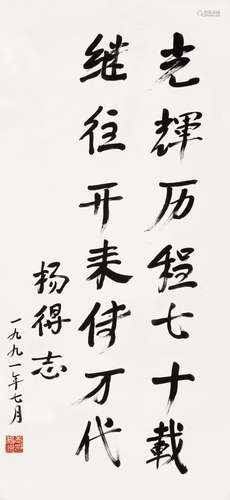 光輝历程七十載
继往开来传万代
杨得志
一九九一年七月